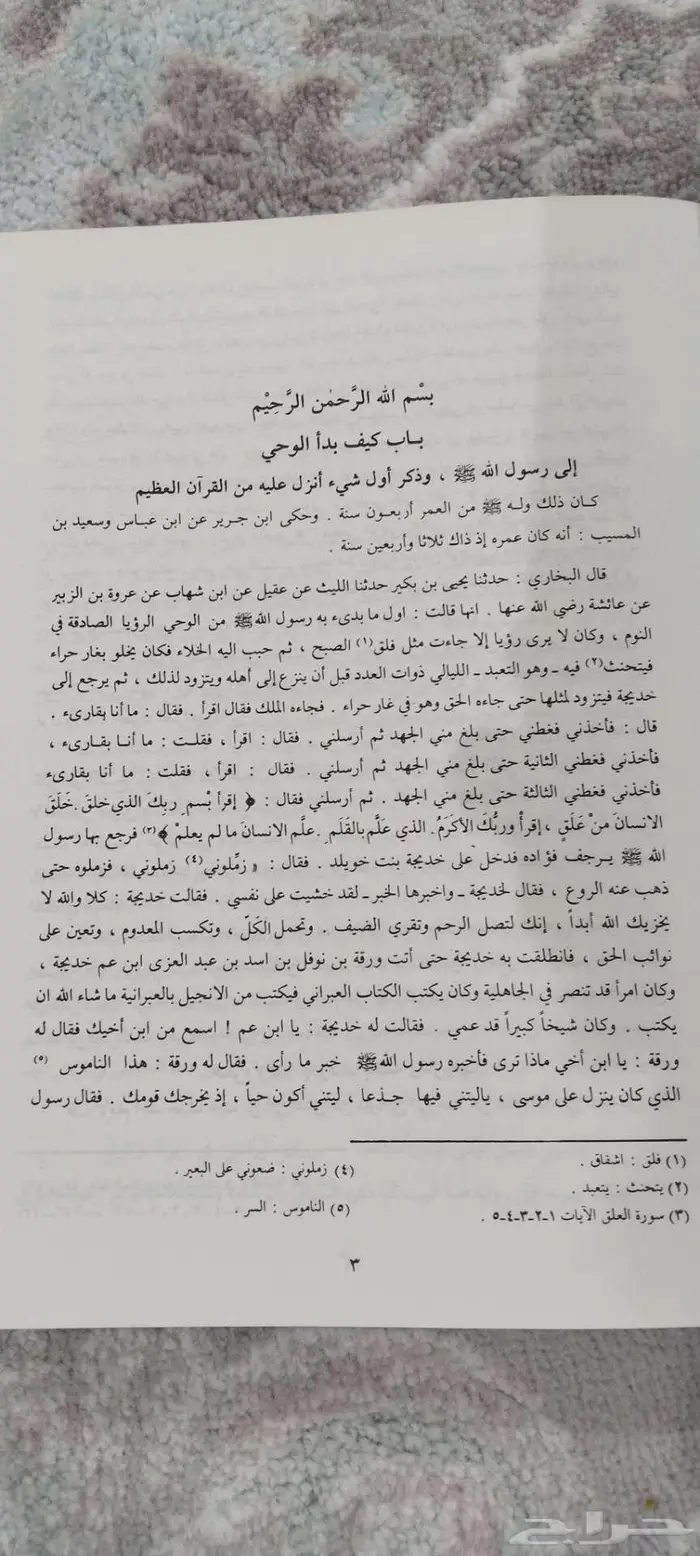 بسْم الله الرَّحمٰن الرَّحِيْم
بـاب كيف بدأ الوحي
إلى رسول الله ﷺ ، وذكر أول شيء أنزل عليه من القرآن العظيم
كـان ذلك ولـه ﷺ من العمر أربعـون سنة . وحكى ابن جـرير عن ابن عبـاس وسعيد بن
المسيب : أنه كان عمره إذ ذاك ثلاثا وأربعين سنة .
قال البخاري : حدثنا يحيى بن بكير حدثنا الليث عن عقيل عن ابن شهاب عن عروة بن الزبير
عن عائشة رضي الله عنها . انها قالت : اول ما بدىء به رسول الله ﷺ من الوحي الرؤيا الصادقة في
النوم ، وكان لا يرى رؤيا إلا جاءت مثل فلق(١) الصبح ، ثم حبب اليه الخلاء فكان يخلو بغار حراء
فيتحنث(٢) فيه ـ وهو التعبد ـ الليالي ذوات العدد قبل أن ينزع إلى أهله ويتزود لذلك ، ثم يرجع إلى
خديجة فيتزود لمثلها حتى جاءه الحق وهو في غار حراء . فجاءه الملك فقال اقرأ . فقال : ما أنا بقارىء .
قال : فأخذني فغطني حتى بلغ مني الجهد ثم أرسلني . فقال : اقرأ ، فقلـت : ما أنـا بقـارىء ،
فأخذني فغطني الثانية حتى بلغ مني الجهد ثم أرسلني . فقال : اقرأ ، فقلت : ما أنا بقارىء
فأخذني فغطني الثالثة حتى بلغ مني الجهد . ثم أرسلني فقال : ﴿ إقرأ بْسمِ ربِكَ الذي خلقَ . خَلَقَ
الانسانَ منْ عَلَقٍ ، إقرأْ وربُّكَ الأكرَمُ . الذي عَلَّم بالقَلَمِ . علَّم الانسانَ ما لم يعلمْ ﴾(٣) فرجع بها رسول
الله ﷺ يـرجف فؤاده فدخل على خديجة بنت خويلد . فقال : « زمِّلوني(٤) زملوني ، فزملوه حتى
ذهب عنه الروع ، فقال لخديجة ـ واخبرها الخبر ـ لقد خشيت على نفسي . فقالت خديجة : كلا والله لا
يخزيك الله أبداً ، إنك لتصل الرحم وتقري الضيف . وتحمل الكَلّ ، وتكسب المعدوم ، وتعين على
نوائب الحق ، فانطلقت به خديجة حتى أتت ورقة بن نوفل بن اسد بن عبد العزى ابن عم خديجة ،
وكان امرأ قد تنصر في الجاهلية وكان يكتب الكتاب العبراني فيكتب من الانجيل بالعبرانية ما شاء الله ان
يكتب . وكان شيخاً كبيراً قد عمي . فقالت له خديجة : يا ابن عم ! اسمع من ابن أخيك فقال له
ورقة : يا ابن أخي ماذا ترى فأخبره رسول الله ﷺ خبر ما رأى . فقال له ورقة : هذا الناموس (٥)
الذي كان ينزل على موسى ، ياليتني فيها جـذعا ، ليتني أكون حياً ، إذ يخرجك قومك . فقال رسول
(١) فلق : اشقاق .
(٢) يتحنث : يتعبد .
(٣) سورة العلق الآيات ١-٢-٣-٤-٥ .
(٤) زملوني : ضعوني على البعير .
(٥) الناموس : السر .
٣
حراج